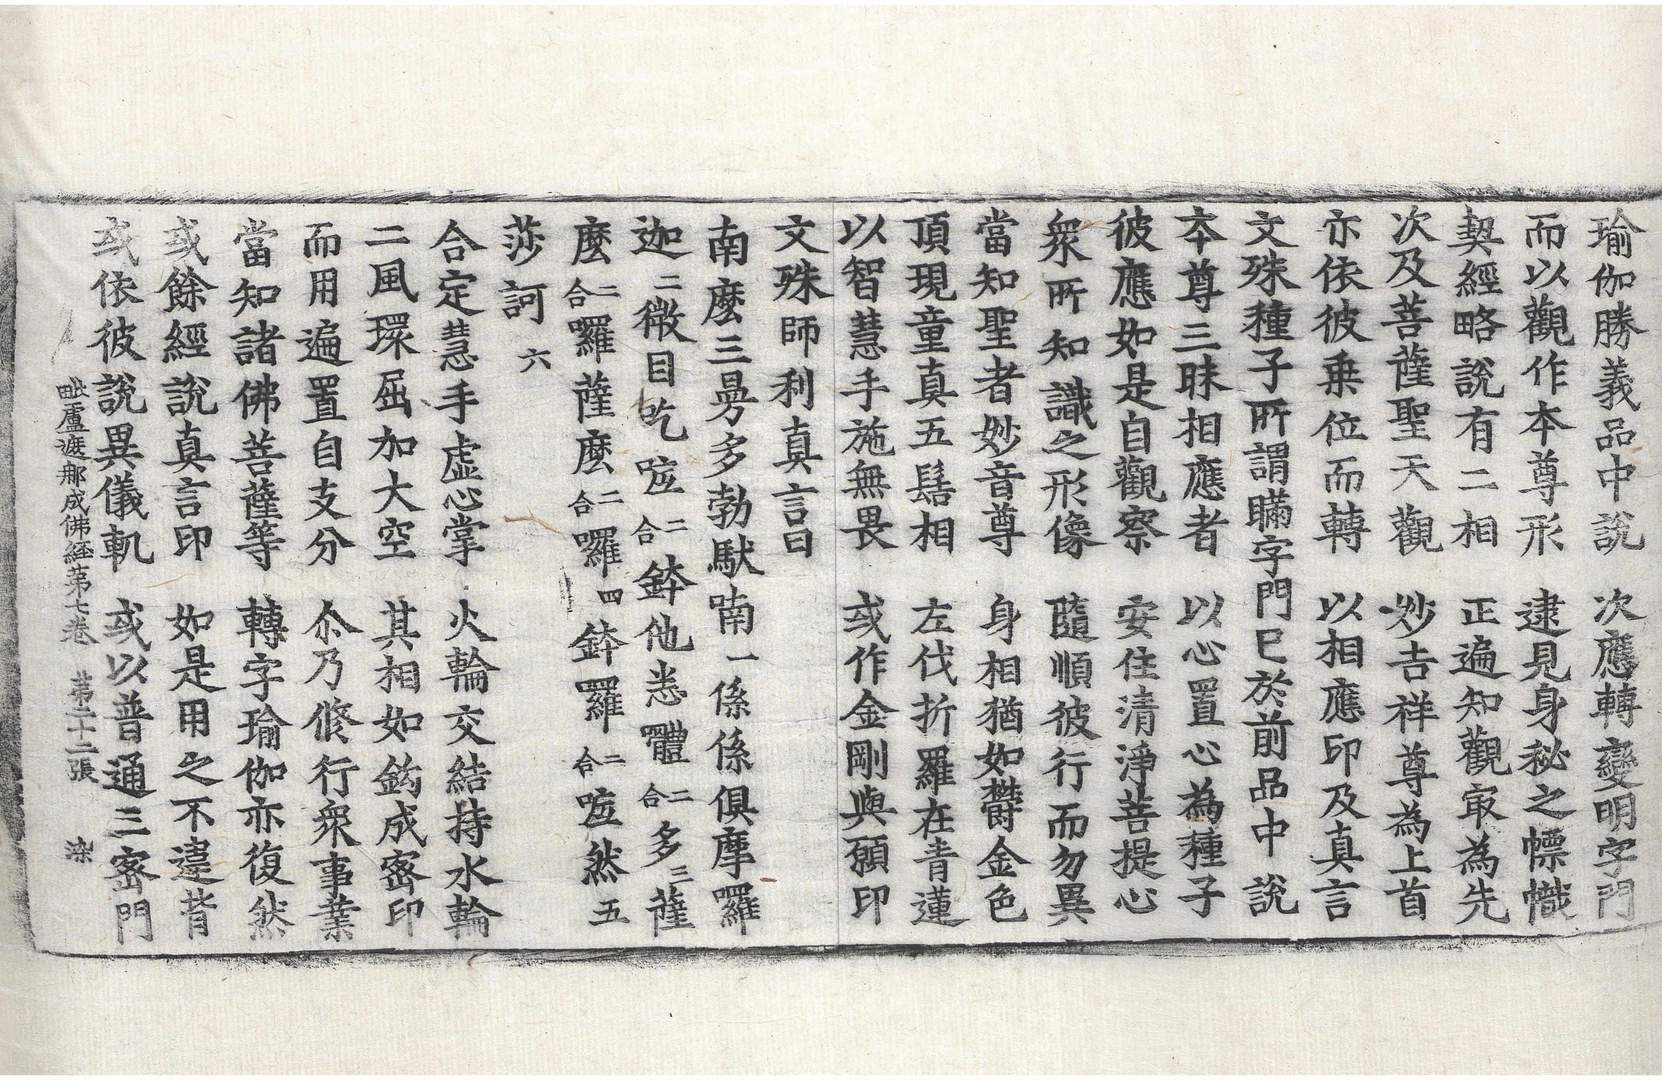 瑜伽勝義品中說　次應轉變明字門
而以觀作本尊形　逮見身秘之幖幟
契經略說有二相　正遍知觀㝡為先
次及菩薩聖天觀　妙吉祥尊為上首
亦依彼乗位而轉　以相應印及真言
文殊種子所謂瞞字門已於前品中說
本尊三昧相應者　以心置心為種子
彼應如是自觀察　安住清淨菩提心
衆所知識之形像　隨順彼行而勿異
當知聖者妙音尊　身相猶如欝金色
頂現童真五髻相　左伐折羅在青蓮
以智慧手施無畏　或作金剛與願印
文殊師利真言曰
南麼三曼多勃馱喃一係係俱摩囉
迦二微目吃㗚二合鉢他悉體二合多三薩
麼二合囉薩麼二合囉四鉢囉二合㗚然五
莎訶六
合定慧手虛心掌　火輪交結持水輪
二風環屈加大空　其相如鈎成密印
而用遍置自支分　尒乃修行衆事業
當知諸佛菩薩等　轉字瑜伽亦復然
或餘經說真言印　如是用之不違背
或依彼說異儀軌　或以普通三密門
毗盧遮那成佛經第七卷　第二十二張　染